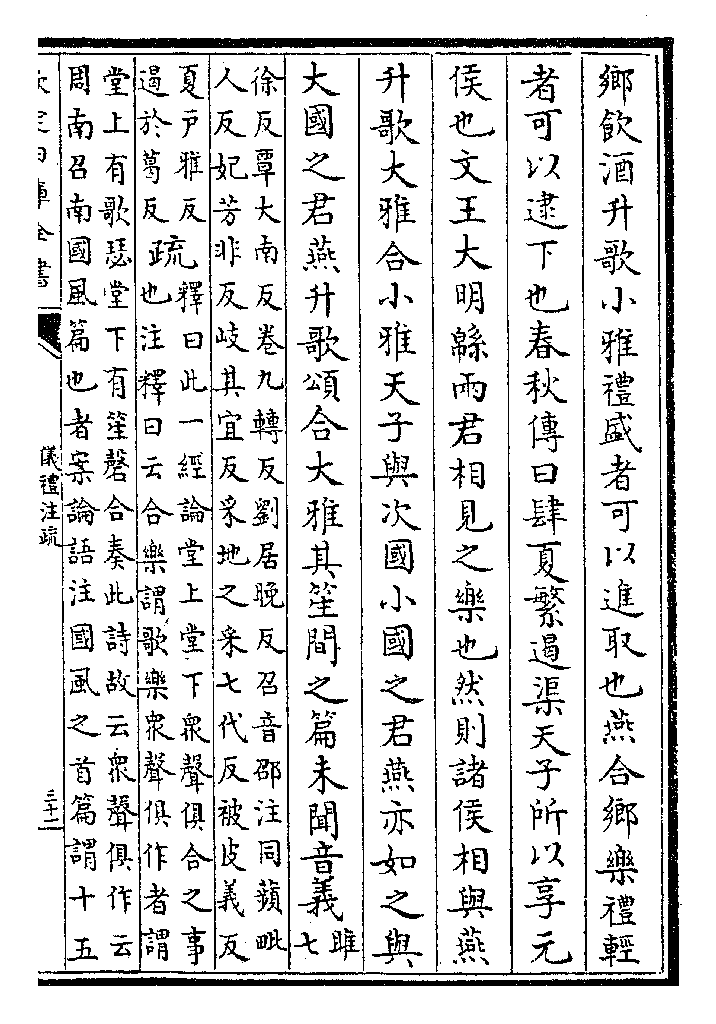 鄉飲酒升歌小雅禮盛者可以進取也燕合鄉樂禮輕
者可以逮下也春秋傳曰肆夏繁遏渠天子所以享元
侯也文王大明緜兩君相見之樂也然則諸侯相與燕
升歌大雅合小雅天子與次國小國之君燕亦如之與
大國之君燕升歌頌合大雅其笙間之篇未聞音義雎七
徐反覃大南反卷九轉反劉居晚反召音邵注同蘋毗
人反妃芳非反岐其宜反采地之采七代反被皮義反
夏戸雅反
遏於葛反
疏
釋曰此一經論堂上堂下衆聲俱合之事
也注釋曰云合樂謂歌樂衆聲俱作者謂
堂上有歌瑟堂下有笙磬合奏此詩故云衆聲俱作云
周南召南國風篇也者案論語注國風之首篇謂十五
欽定四庫全書
儀禮注疏
三十二